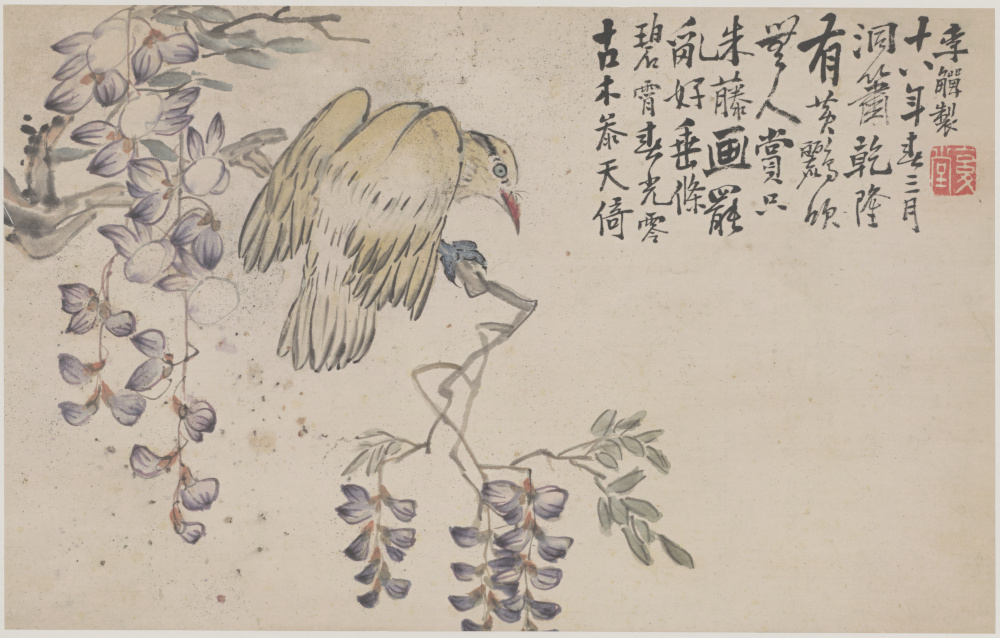 古木叅天倚
碧霄春光零
亂好垂條
朱藤画罷
無人賞只
有黄鸝頌
洞簫乾隆
十八年春三月
李鱓製
复堂